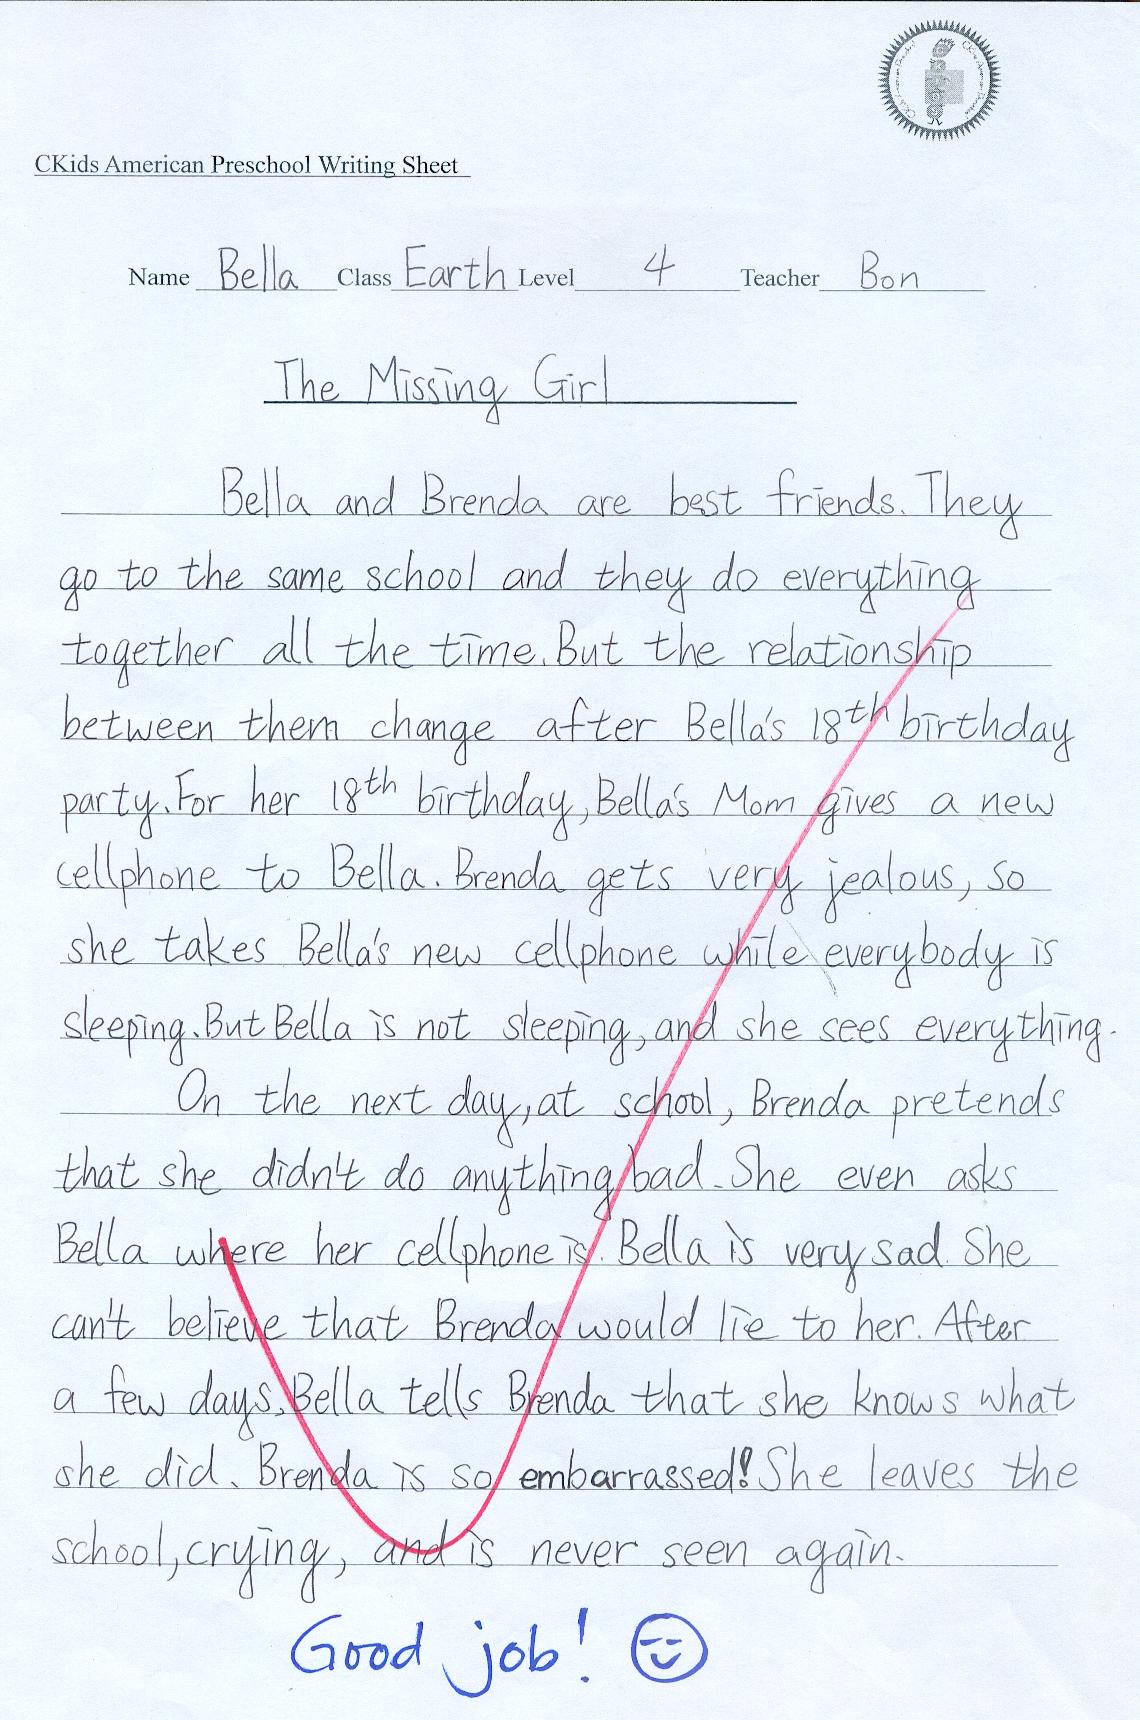 CKids American Preschool Writing Sheet
Name Bella Class Earth Level 4 Teacher Bon
The Missing Girl
Bella and Brenda are best friends. They
go to the same school and they do everything
together all the time. But the relationship
between them change after Bella's 18th birthday
party. For her 18th birthday, Bella's Mom gives a new
cellphone to Bella. Brenda gets very jealous, so
she takes Bella's new cellphone while everybody is
sleeping. But Bella is not sleeping, and she sees everything.
On the next day, at school, Brenda pretends
that she didn't do anything bad. She even asks
Bella where her cellphone is. Bella is very sad. She
can't believe that Brenda would lie to her. After
a few days, Bella tells Brenda that she knows what
she did. Brenda is so embarrassed! She leaves the
school, crying, and is never seen again.
Good job!